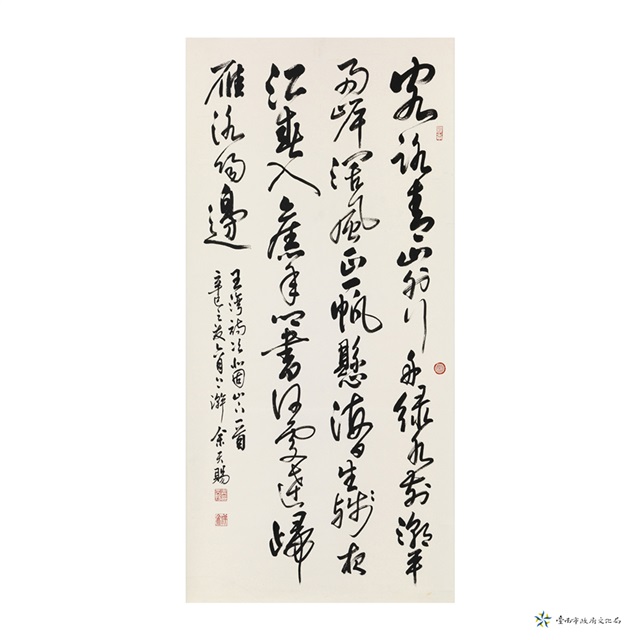 客路青山外行舟綠水前潮平
兩岸闊風正一帆懸海日生殘夜
江春入舊年鄉書何處達歸
雁洛陽邊
王灣詩次北固山下一首
辛巳之歲六月上澣余天賜
臺南市政府文化局